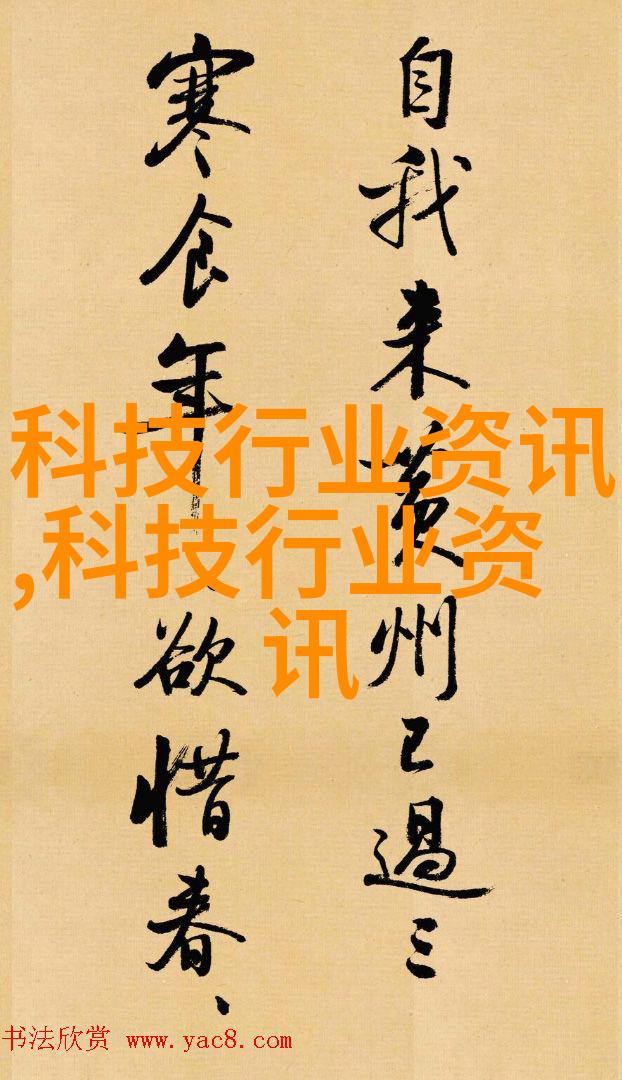 自我来黄州已過三
寒食年〻欲惜春〻
科技行业资讯
,科技行业资
讯
书法欣赏 www.yac8.com